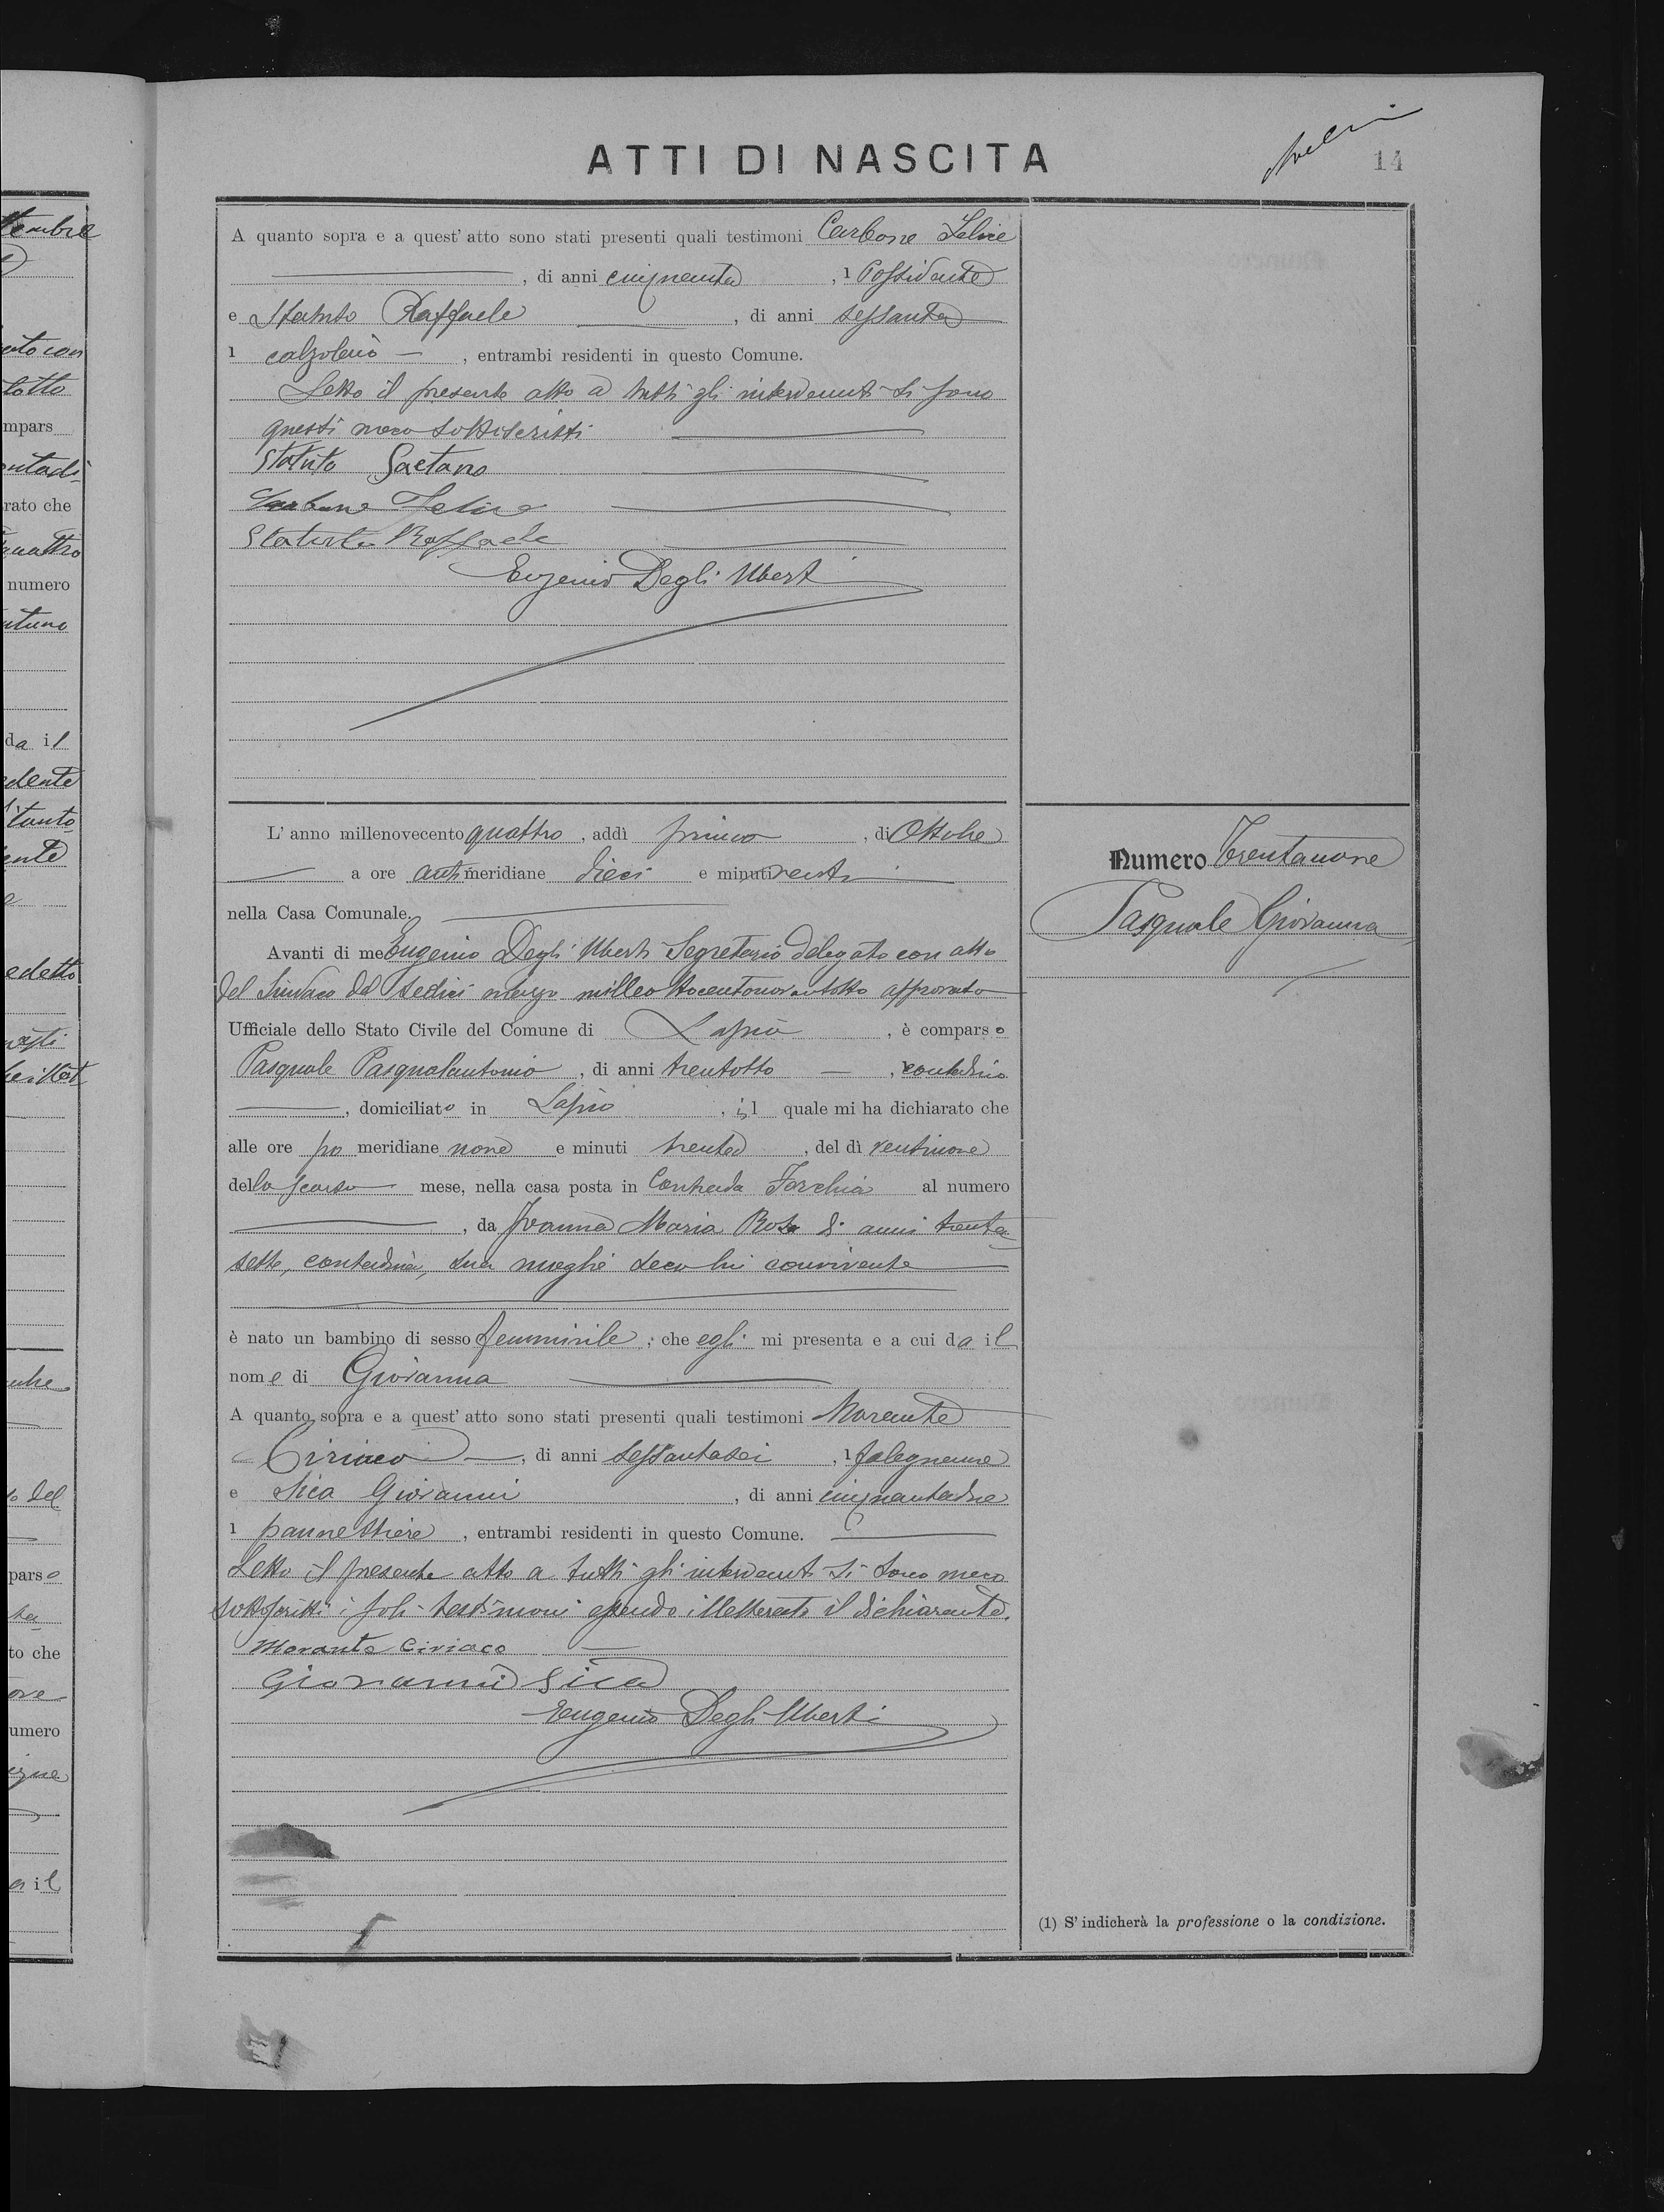 ATTI DI NASCITA
14
A quanto sopra e a quest' atto sono stati presenti quali testimoni Carbone Felice
, di anni cinquanta , 1 Possidente
e Statuto Raffaele , di anni sessanta
1 calzolaio , entrambi residenti in questo Comune.
Letto il presente atto a tutti gl' intervenuti si sono
questi meco sottoscritti
Statuto Gaetano
Carbone Felice
Statuto Raffaele
Eugenio Degli Uberti
L' anno millenovecento quattro , addì primo , di Ottobre
a ore antimeridiane dieci e minuti venti
nella Casa Comunale.
Avanti di me Eugenio Degli Uberti Segretario delegato con atto
del Sindaco del sedici marzo milleottocentonovantotto approvato
Ufficiale dello Stato Civile del Comune di Lapio , è comparso
Pasquale Pasqualantonio , di anni trentotto , contadino
, domiciliato in Lapio , il quale mi ha dichiarato che
alle ore po meridiane nove e minuti trenta , del dì ventinove
dello scorso mese, nella casa posta in Contrada al numero
, da Maria Rosa di anni trenta
sette, contadina, sua moglie seco lui convivente
è nato un bambino di sesso femminile , che egli mi presenta e a cui da il
nome di Giovanna
A quanto sopra e a quest' atto sono stati presenti quali testimoni Morante
Ciriaco , di anni sessantasei , 1 falegname
e Sica Giovanni , di anni cinquantadue
1 pannettiere , entrambi residenti in questo Comune.
Letto il presente atto a tutti gl' intervenuti si sono meco
sottoscritti i soli testimoni essendo illetterato il dichiarante.
Morante Ciriaco
Giovanni Sica
Eugenio Degli Uberti
Numero Trentanove
Pasquale Giovanna
(1) S' indicherà la professione o la condizione.
ttembre
lotto
mpars
ntadi
rato che
quattro
numero
ntuno
da il
dente
edetto
del
parso
to che
ove
umero
a il